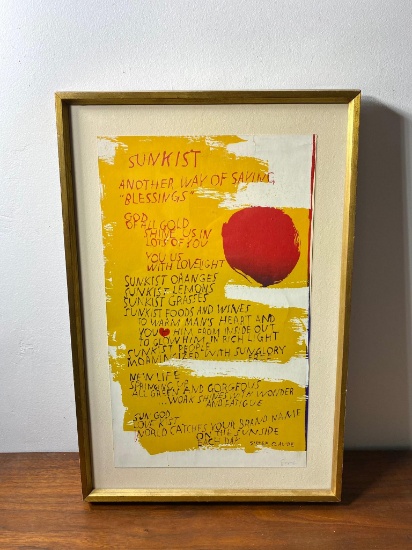 SUNKIST
ANOTHER WAY OF SAYING
"BLESSINGS"
GOD
OF ALL GOLD
SHINE US IN
LOTS OF YOU
YOU US
WITH LOVELIGHT
SUNKIST ORANGES
SUNKIST LEMONS
SUNKIST GRASSES
SUNKIST FOODS AND WINES
TO WARM MAN'S HEART AND
YOU HIM FROM INSIDE OUT
TO GLOW HIM IN RICH LIGHT
SUNKIST PEOPLE
WITH SUNGLORY
NEW LIFE
SPRINGING UP
ALL GREEN AND GORGEOUS
...WORK SHINES WITH WONDER
AND FATIGUE
SUN GOD
WORLD CATCHES YOUR BRAND NAME
ON THE SUNSIDE
EACH DAY